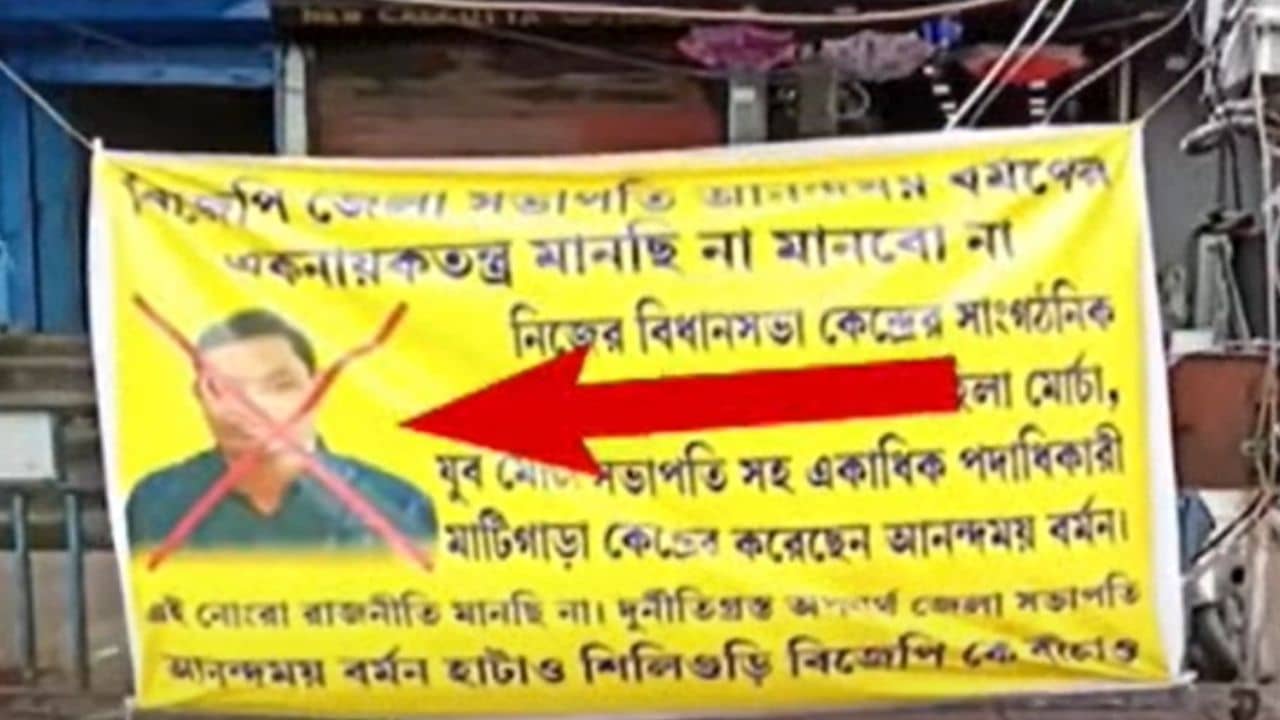 NEW CALCUTTA
বিজেপি জেলা সভাপতি আনন্দময় বর্মণের
একনায়কতন্ত্র মানছি না মানবো না
নিজের বিধানসভা কেন্দ্রের সাংগঠনিক
মোর্চা,
যুব মোর্চা সভাপতি সহ একাধিক পদাধিকারী
মাটিগাড়া কেন্দ্রের করেছেন আনন্দময় বর্মন।
এই নোংরা রাজনীতি মানছি না। দুর্নীতিগ্রস্ত অপদার্থ জেলা সভাপতি
আনন্দময় বর্মন হাটাও শিলিগুড়ি বিজেপি কে বাঁচাও